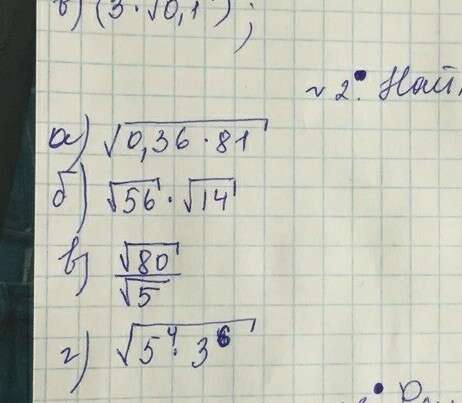 в) (3 · √0,1) ;
№ 2. Най
а) √0,36 · 81
б) √56 · √14
в) √80 / √5
г) √5⁴ · 3⁶